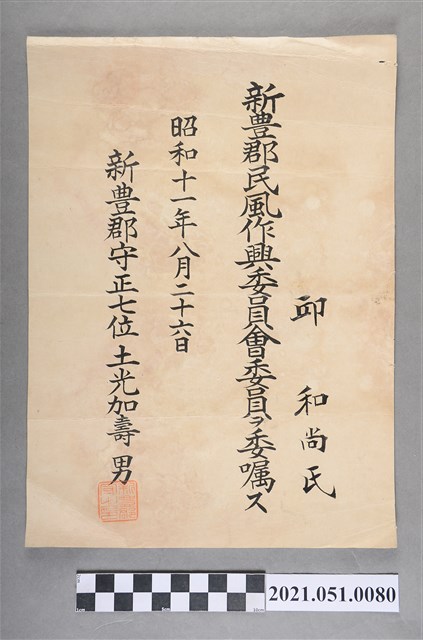 邱 和尚氏
新豊郡民風作興委員會委員ヲ委嘱ス
昭和十一年八月二十六日
新豊郡守正七位土光加壽男
2021.051.0080